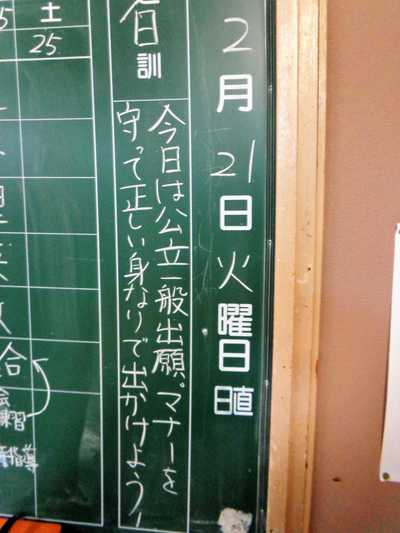 2月21日火曜日
日直
日訓
今日は公立一般出願。マナーを
守って正しい身なりで出かけよう！
土
25
合
習
指導